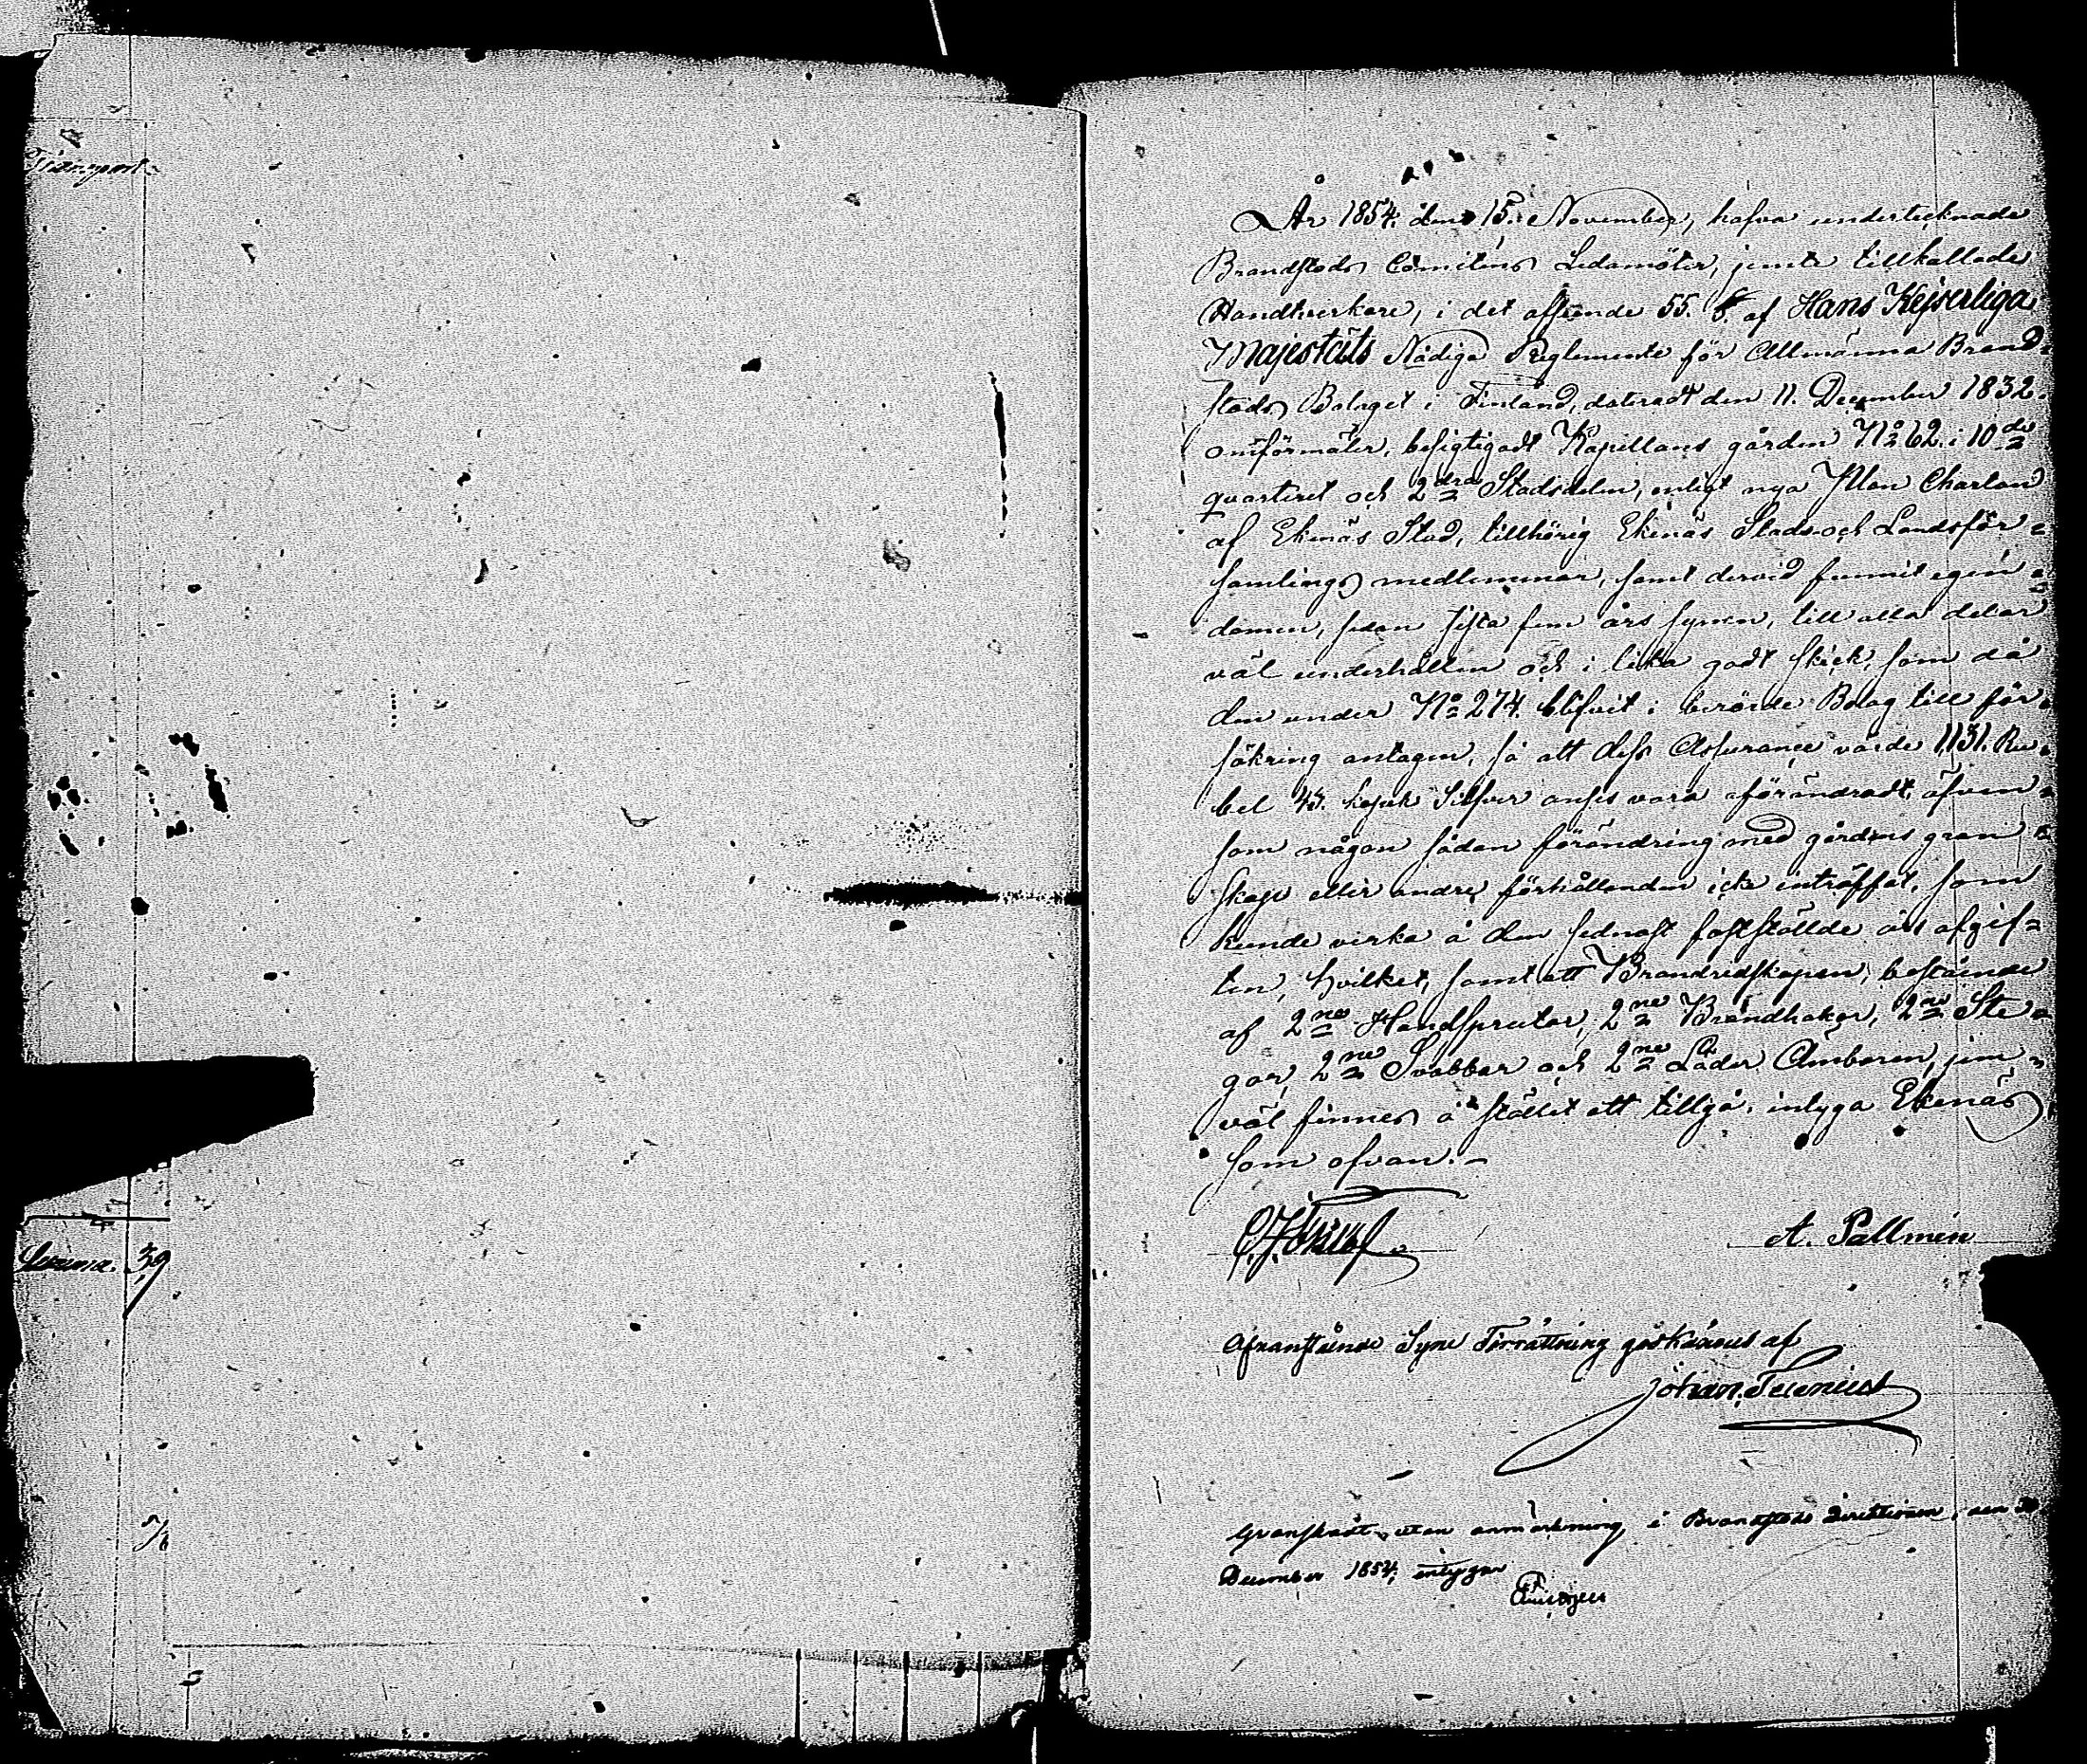 Transport
Summa. 39
År 1854. den 15. November, hafva undertecknade
Brandstods Comiténs Ledamöter, jemte tillkallade
Handtverkare, i det afseende 55. §. af Hans Kejserliga
Majestäts Nådiga Reglemente för Allmänna Brand-
stods Bolaget i Finland, dateradt den 11. December 1832.
omförmäler, besigtigadt Kapellans gården No 62. i 10de
quarteret och 2dra Stadsdelen, enligt nya Plan Chartan
af Ekenäs Stad, tillhörig Ekenäs Stads och Landsför=
samlings medlemmar, samt dervid funnit egen=
domen, sedan sista fem års synen, till alla delar
väl underhållen och i lika godt skick, som då
den under No 274. blifvit i berörde Bolag till för-
säkring antagen, så att dess Assurance värde 1,131. Ru-
bel 43. kopek Silfver anses vara oförändradt, äfven-
som någon sådan förändring med gårdens gran=
skap eller andre förhållanden icke inträffat, som
kunde verka å den sednast fastställde års afgif=
ten, hvilket, samt att Brandredskapen, bestående
af 2ne Handsprutor, 2ne Brandhakar, 2ne Ste=
gar, 2ne Svabbar och 2ne Läder Ämbaren, jem=
väl finnes å stället att tillgå, intyga Ekenäs
som ofvan.-
A. Pallmén
Ofvanstående Syne Förrättning godkännes af
Johan
Granskadt, utan anmärkning, i Brandstods Directionen, den
December 1854, intygar